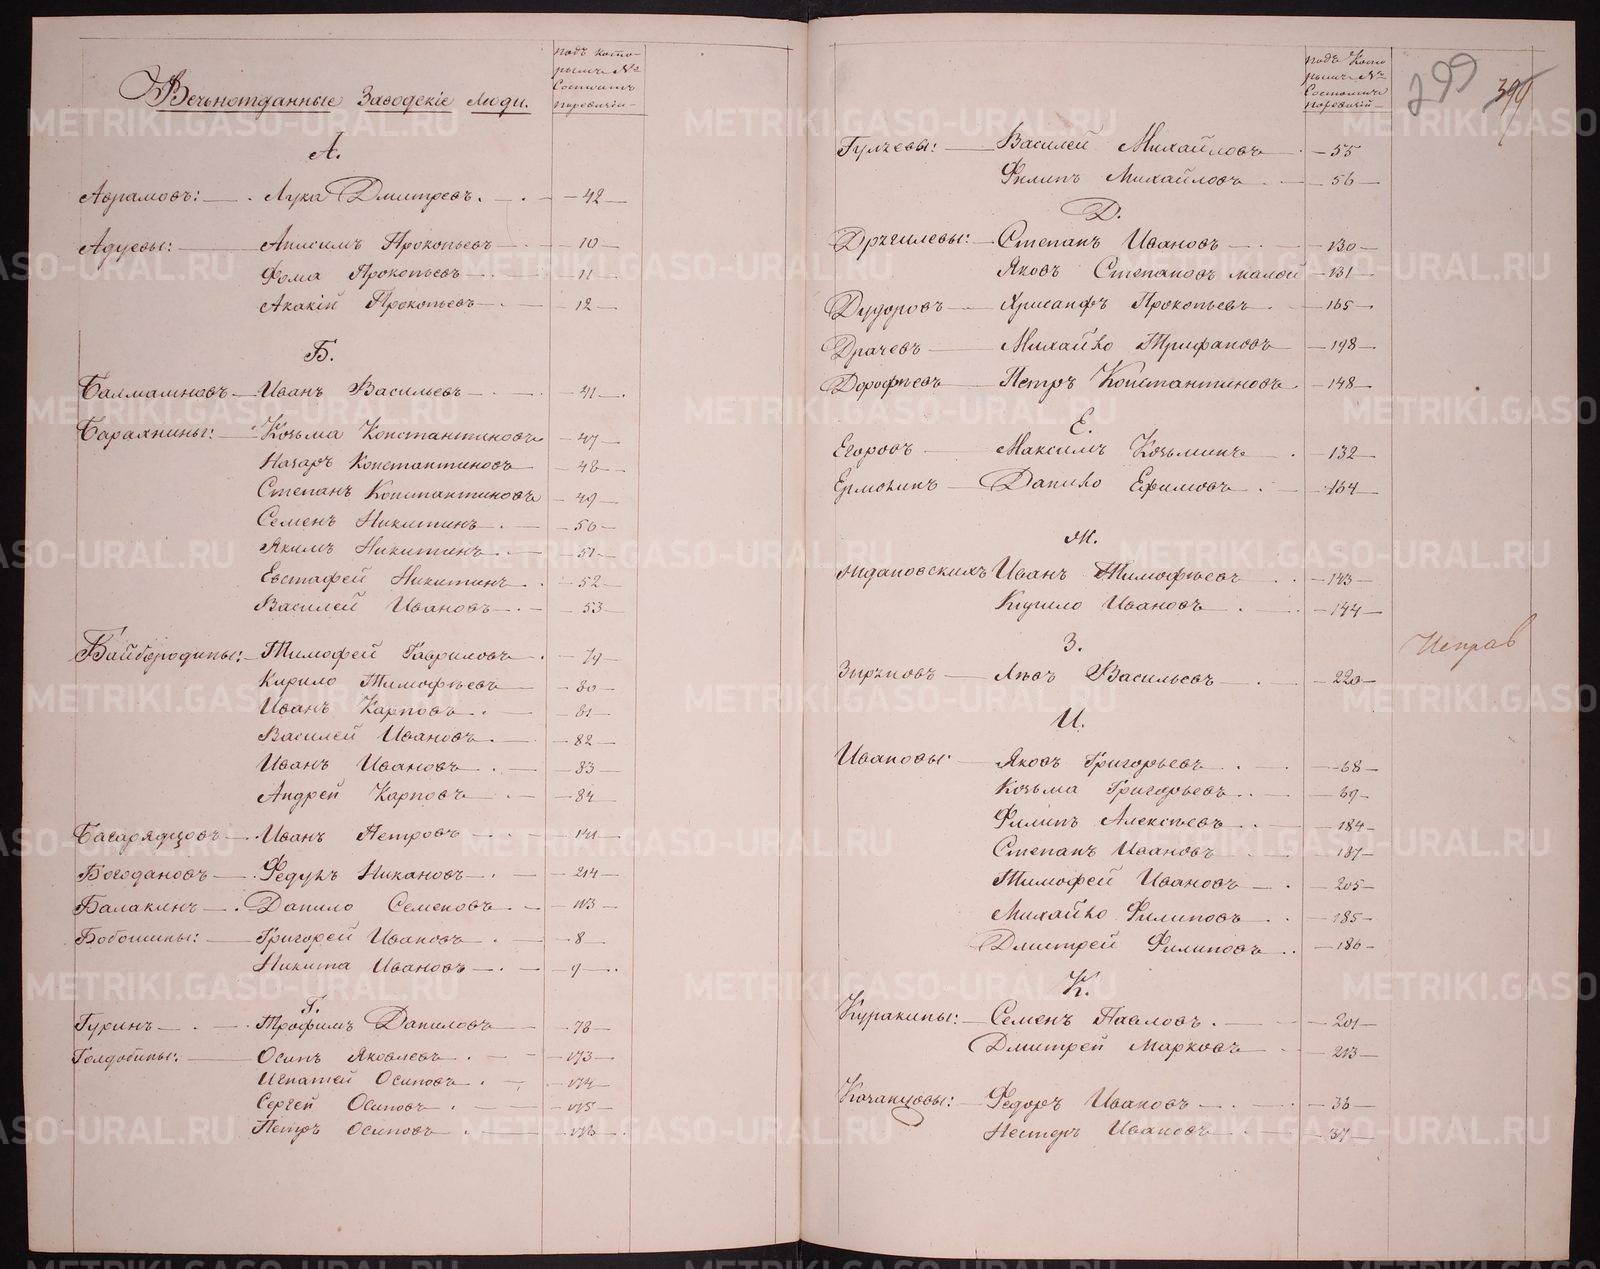 Вечьнотданные Заводскіе Люди.
подъ кото-
рымъ №
Состоитъ
поревизіи
А.
Аврамовъ: Лука Дмитревъ. 42
Адуевы: Анисимъ Прокопьевъ 10
Фома Прокопьевъ 11
Акакій Прокопьевъ 12
Б.
Балмашновъ Иванъ Васильевъ 41
Барахнины: Козьма Константиновъ 47
Назаръ Константиновъ 48
Степанъ Константиновъ 49
Семенъ Никитинъ 50
Якимъ Никитинъ 51
Евстафей Никитинъ 52
Василей Ивановъ 53
Байбородины: Тимофей Гавриловъ 79
Кирило Тимофѣевъ 80
Иванъ Карповъ 81
Василей Ивановъ 82
Иванъ Ивановъ 83
Андрей Карповъ 84
Иванъ Петровъ 141
Богодановъ Федулъ Никановъ 214
Балакинъ Данило Семеновъ 113
Бобошины: Григорей Ивановъ 8
Никита Ивановъ 9
Г.
Гуринъ Трофимъ Даниловъ 78
Голдобины: Осипъ Яковлевъ 173
Игнатей Осиповъ 174
Сергей Осиповъ 175
Петръ Осиповъ 176
подъ Кото
рымъ №
Состоитъ
поревизій
299 390
Гулчевы: Василей Михайловъ 55
Филипъ Михайловъ 56
Д.
Степанъ Ивановъ 130
Яковъ Степановъ малой 131
Дудоровъ Хрисанфъ Прокопьевъ 165
Драчевъ Михайло Трифановъ 198
Дорофѣевъ Петръ Константиновъ 148
Е.
Егоровъ Максимъ Козьминъ 132
Ермокинъ Данило Ефимовъ 164
Ж.
Ждановскихъ Иванъ Тимофѣевъ 143
Кирило Ивановъ 144
З.
Зыряновъ Левъ Васильевъ 220
Исправ
И.
Ивановы: Яковъ Григорьевъ 68
Козьма Григорьевъ 69
Филипъ Алексѣевъ 184
Степанъ Ивановъ 187
Тимофей Ивановъ 205
Михайло Филиповъ 185
Дмитрей Филиповъ 186
К.
Куракины: Семенъ Павловъ 201
Дмитрей Марковъ 213
Казанцовы: Федоръ Ивановъ 36
Нестеръ Ивановъ 37
METRIKI.GASO-URAL.RU